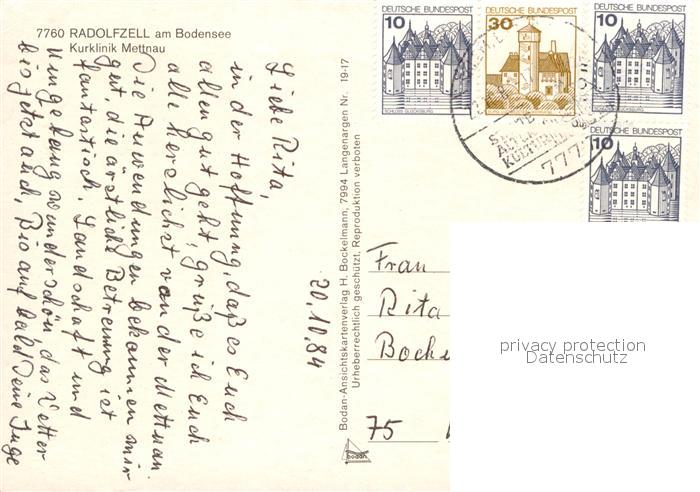 7760 RADOLFZELL am Bodensee
Kurklinik Mettnau
Liebe Rita,
in der Hoffnung, daß es Euch
allen gut geht, grüße ich Euch
alle herzlichst von der Mettnau.
Die Anwendungen bekommen mir
gut, die ärztliche Betreuung ist
fantastisch. Landschaft und
Umgebung wunderschön, das Wetter
bis jetzt auch. Bis auf bald Deine Inge
20.10.84
Bodan-Ansichtskartenverlag H. Bockelmann, 7994 Langenargen Nr. 19-17
Urheberrechtlich geschützt, Reproduktion verboten
bodan
DEUTSCHE BUNDESPOST
10
SCHLOSS GLÜCKSBURG
DEUTSCHE BUNDESPOST
30
DEUTSCHE BUNDESPOST
10
SCHLOSS GLÜCKSBURG
DEUTSCHE BUNDESPOST
10
777
Frau
Rita
Bocke
75
privacy protection
Datenschutz